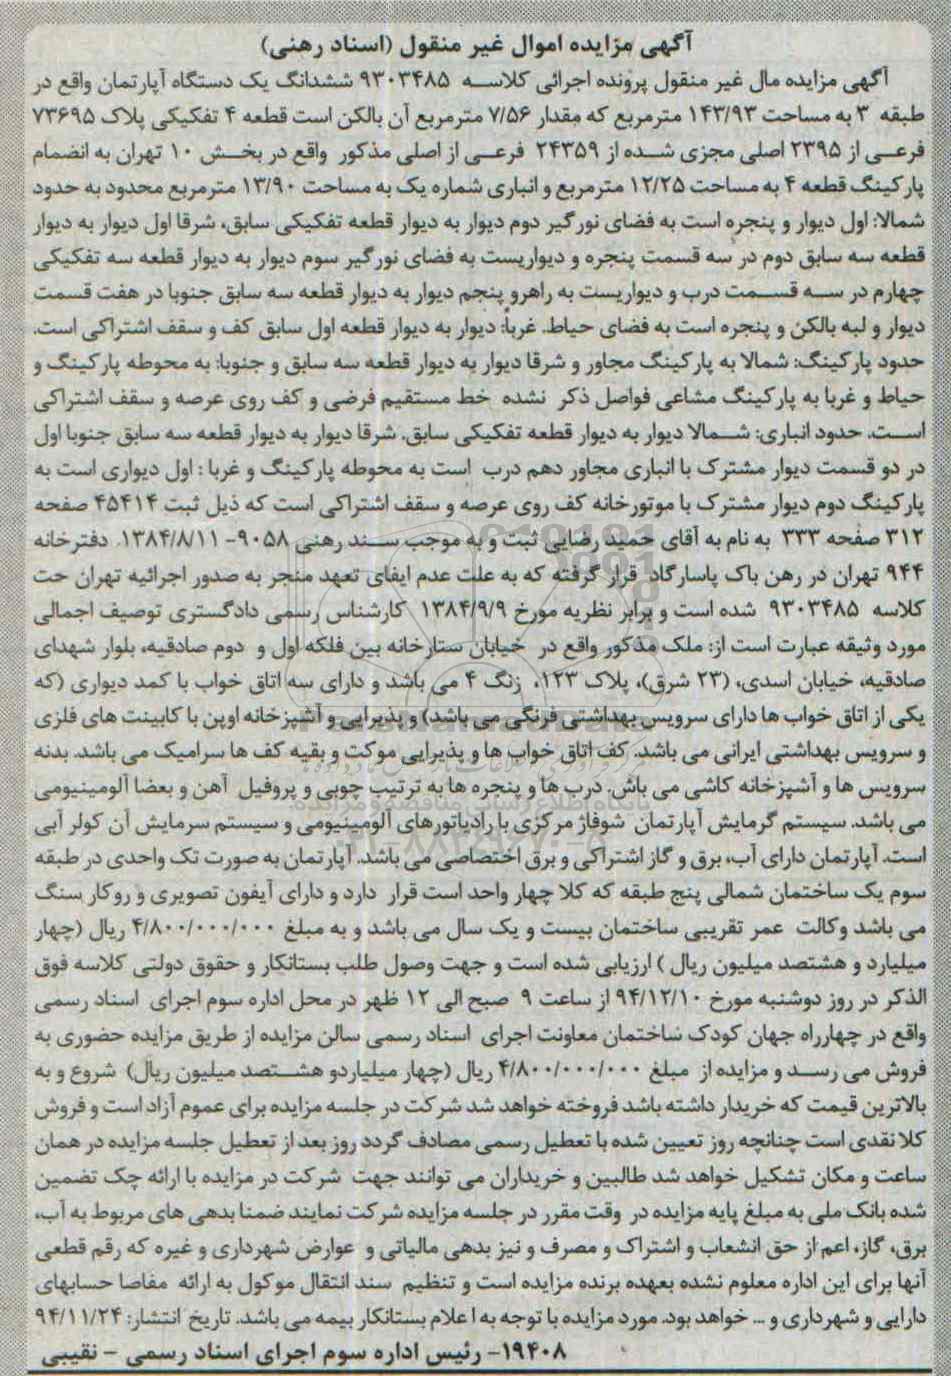 آگهی مزایده اموال غیر منقول (اسناد رهنی)
آگهی مزایده مال غیر منقول پرونده اجرائی کلاسه ۹۳۰۳۴۸۵ ششدانگ یک دستگاه آپارتمان واقع در
طبقه ۳ به مساحت ۱۴۳/۹۳ مترمربع که مقدار ۷/۵۶ مترمربع آن بالکن است قطعه ۴ تفکیکی پلاک ۷۳۶۹۵
فرعی از ۲۳۹۵ اصلی مجزی شده از ۲۴۳۵۹ فرعی از اصلی مذکور واقع در بخش ۱۰ تهران به انضمام
پارکینگ قطعه ۴ به مساحت ۱۲/۲۵ مترمربع و انباری شماره یک به مساحت ۱۳/۹۰ مترمربع محدود به حدود
شمالا: اول دیوار و پنجره است به فضای نورگیر دوم دیوار به دیوار قطعه تفکیکی سابق، شرقا اول دیوار به دیوار
قطعه سه سابق دوم در سه قسمت پنجره و دیواریست به فضای نورگیر سوم دیوار به دیوار قطعه سه تفکیکی
چهارم در سه قسمت درب و دیواریست به راهرو پنجم دیوار به دیوار قطعه سه سابق جنوبا در هفت قسمت
دیوار و لبه بالکن و پنجره است به فضای حیاط. غرباً: دیوار به دیوار قطعه اول سابق کف و سقف اشتراکی است.
حدود پارکینگ: شمالا به پارکینگ مجاور و شرقا دیوار به دیوار قطعه سه سابق و جنوبا: به محوطه پارکینگ و
حیاط و غربا به پارکینگ مشاعی فواصل ذکر نشده خط مستقیم فرضی و کف روی عرصه و سقف اشتراکی
است. حدود انباری: شمالا دیوار به دیوار قطعه تفکیکی سابق. شرقا دیوار به دیوار قطعه سه سابق جنوبا اول
در دو قسمت دیوار مشترک با انباری مجاور دهم درب است به محوطه پارکینگ و غربا : اول دیواری است به
پارکینگ دوم دیوار مشترک با موتورخانه کف روی عرصه و سقف اشتراکی است که ذیل ثبت ۴۵۴۱۴ صفحه
۳۱۲ صفحه ۳۳۳ به نام به آقای حمید رضایی ثبت و به موجب سند رهنی ۹۰۵۸- ۱۳۸۴/۸/۱۱ دفترخانه
۹۴۴ تهران در رهن باک پاسارگاد قرار گرفته که به علت عدم ایفای تعهد منجر به صدور اجرائیه تهران حت
کلاسه ۹۳۰۳۴۸۵ شده است و برابر نظریه مورخ ۱۳۸۴/۹/۹ کارشناس رسمی دادگستری توصیف اجمالی
مورد وثیقه عبارت است از: ملک مذکور واقع در خیابان ستارخانه بین فلکه اول و دوم صادقیه، بلوار شهدای
صادقیه، خیابان اسدی، (۲۳ شرق)، پلاک ۱۲۳، زنگ ۴ می باشد و دارای سه اتاق خواب با کمد دیواری (که
یکی از اتاق خواب ها دارای سرویس بهداشتی فرنگی می باشد) و پذیرایی و آشپزخانه اوپن با کابینت های فلزی
و سرویس بهداشتی ایرانی می باشد. کف اتاق خواب ها و پذیرایی موکت و بقیه کف ها سرامیک می باشد. بدنه
سرویس ها و آشپزخانه کاشی می باش. درب ها و پنجره ها به ترتیب چوبی و پروفیل آهن و بعضا آلومینیومی
می باشد. سیستم گرمایش آپارتمان شوفاژ مرکزی با رادیاتورهای آلومینیومی و سیستم سرمایش آن کولر آبی
است. آپارتمان دارای آب، برق و گاز اشتراکی و برق اختصاصی می باشد. آپارتمان به صورت تک واحدی در طبقه
سوم یک ساختمان شمالی پنج طبقه که کلا چهار واحد است قرار دارد و دارای آیفون تصویری و روکار سنگ
می باشد وکالت عمر تقریبی ساختمان بیست و یک سال می باشد و به مبلغ ۴/۸۰۰/۰۰۰/۰۰۰ ریال (چهار
میلیارد و هشتصد میلیون ریال ) ارزیابی شده است و جهت وصول طلب بستانکار و حقوق دولتی کلاسه فوق
الذکر در روز دوشنبه مورخ ۹۴/۱۲/۱۰ از ساعت ۹ صبح الی ۱۲ ظهر در محل اداره سوم اجرای اسناد رسمی
واقع در چهارراه جهان کودک ساختمان معاونت اجرای اسناد رسمی سالن مزایده از طریق مزایده حضوری به
فروش می رسد و مزایده از مبلغ ۴/۸۰۰/۰۰۰/۰۰۰ ریال (چهار میلیاردو هشتصد میلیون ریال) شروع و به
بالاترین قیمت که خریدار داشته باشد فروخته خواهد شد شرکت در جلسه مزایده برای عموم آزاد است و فروش
کلا نقدی است چنانچه روز تعیین شده با تعطیل رسمی مصادف گردد روز بعد از تعطیل جلسه مزایده در همان
ساعت و مکان تشکیل خواهد شد طالبین و خریداران می توانند جهت شرکت در مزایده با ارائه چک تضمین
شده بانک ملی به مبلغ پایه مزایده در وقت مقرر در جلسه مزایده شرکت نمایند ضمنا بدهی های مربوط به آب،
برق، گاز، اعم از حق انشعاب و اشتراک و مصرف و نیز بدهی مالیاتی و عوارض شهرداری و غیره که رقم قطعی
آنها برای این اداره معلوم نشده بعهده برنده مزایده است و تنظیم سند انتقال موکول به ارائه مفاصا حسابهای
دارایی و شهرداری و ... خواهد بود. مورد مزایده با توجه به اعلام بستانکار بیمه می باشد. تاریخ انتشار: ۹۴/۱۱/۲۴
۱۹۴۰۸- رئیس اداره سوم اجرای اسناد رسمی - نقیبی